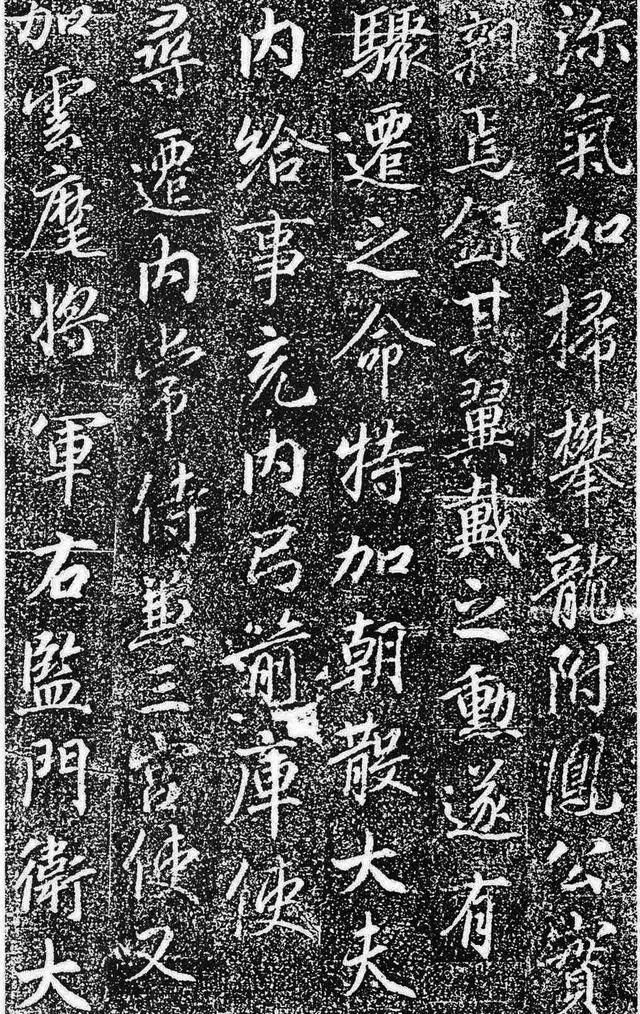 沴氣如掃攀龍附鳳公實
親焉錄其翼戴之勳遂有
驟遷之命特加朝散大夫
內給事充內弓箭庫使
尋遷內常侍兼三宮使又
加雲麾將軍右監門衛大